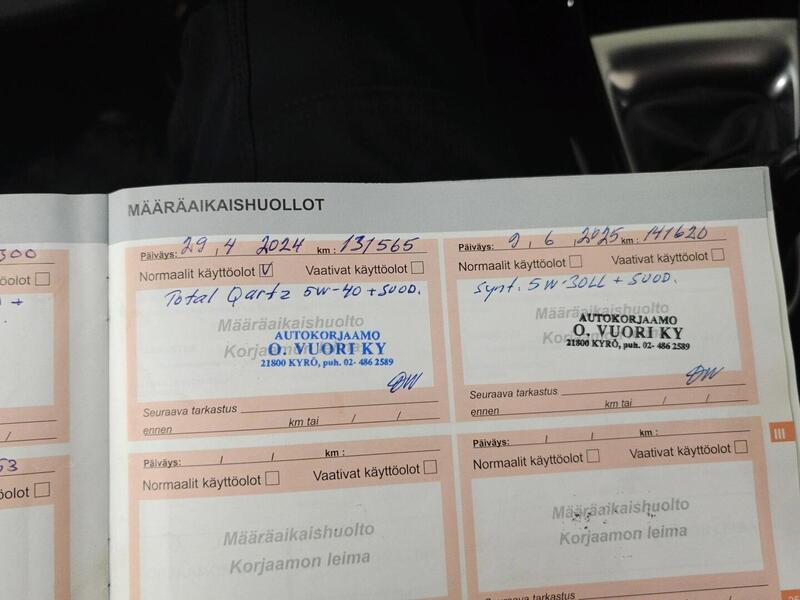 MÄÄRÄAIKAISHUOLLOT
300
olot
53
äyttöolot
Päiväys: 29,4 2024 km: 131565
Normaalit käyttöolot V Vaativat käyttöolot
Total Qartz 5W-40 + SUOD.
Määräaikaishuolto
Korjaamon leima
AUTOKORJAAMO
O. VUORI KY
21800 KYRÖ, puh. 02- 486 2589
Seuraava tarkastus
ennen km tai / /
Päiväys: 9, 6, 2025 km: 141620
Normaalit käyttöolot Vaativat käyttöolot
Synt. 5W-30LL + SUOD.
AUTOKORJAAMO
O. VUORI KY
21800 KYRÖ, puh. 02- 486 2589
Seuraava tarkastus
ennen km tai / /
III
Päiväys: / / km:
Normaalit käyttöolot Vaativat käyttöolot
Määräaikaishuolto
Korjaamon leima
Päiväys: / / km:
Normaalit käyttöolot Vaativat käyttöolot
Määräaikaishuolto
Korjaamon leima